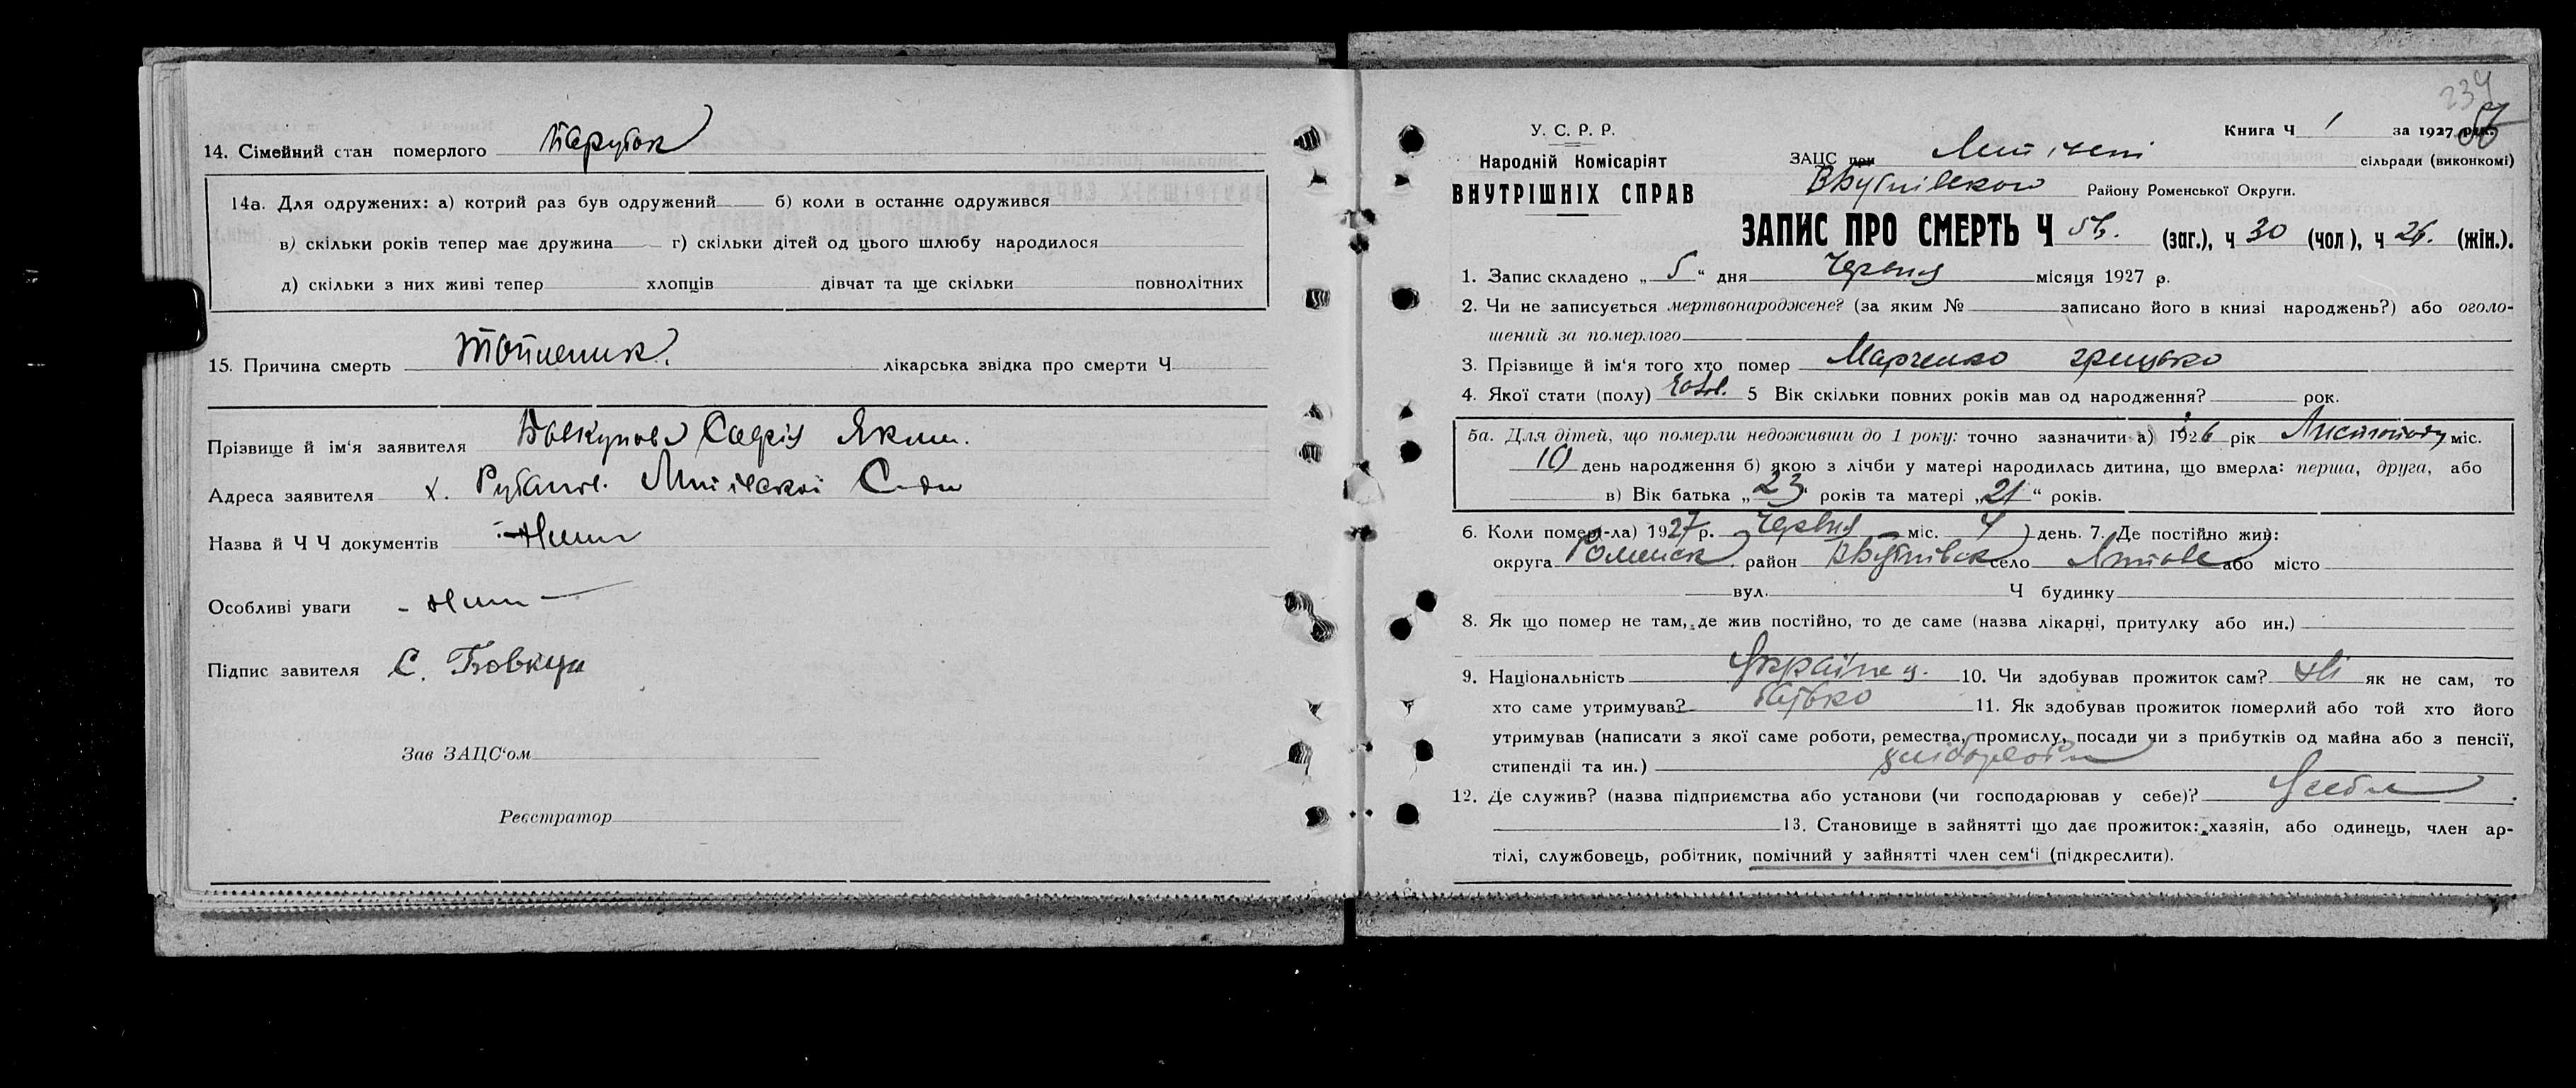 14. Сімейний стан померлого Парубок
14а. Для одружених: а) котрий раз був одружений б) коли в останнє одружився
в) скільки років тепер має дружина г) скільки дітей од цього шлюбу народилося
д) скільки з них живі тепер хлопців дівчат та ще скільки повнолітних
15. Причина смерть лікарська звідка про смерти Ч
Прізвище й ім'я заявителя Яким.
Адреса заявителя х. Сади
Назва й Ч Ч документів Нима
Особливі уваги - Нима -
Підпис завителя С. Бовкун
Зав ЗАЦС'ом
Реєстратор
234
У. С. Р. Р.
Народній Комісаріят
ВНУТРІШНІХ СПРАВ
Книга Ч 1 за 1927 рік.
ЗАЦС при сільради (виконкомі)
Району Роменської Округи.
ЗАПИС ПРО СМЕРТЬ Ч 56. (заг.), ч 30 (чол), ч 26. (жін.).
1. Запис складено „ 5 “ дня Червня місяця 1927 р.
2. Чи не записується мертвонароджене? (за яким № записано його в книзі народжень?) або оголо-
шений за померлого
3. Прізвище й ім'я того хто помер Марченко Грицько
4. Якої стати (полу) 5 Вік скільки повних років мав од народження? рок.
5а. Для дітей, що померли недоживши до 1 року: точно зазначити а) 1926 рік Листопаду міс.
10 день народження б) якою з лічби у матері народилась дитина, що вмерла: перша, друга, або
в) Вік батька „ 23 “ років та матері „ 21 “ років.
6. Коли помер(-ла) 1927 р. Червня міс. 4 день. 7. Де постійно жив:
округа Роменськ. район село або місто
вул. Ч будинку
8. Як що помер не там, де жив постійно, то де саме (назва лікарні, притулку або ин.)
9. Національність Українец. 10. Чи здобував прожиток сам? Ні як не сам, то
хто саме утримував? батько 11. Як здобував прожиток померлий або той хто його
утримував (написати з якої саме роботи, ремества, промислу, посади чи з прибутків од майна або з пенсії,
стипендії та ин.) хлібороб
12. Де служив? (назва підприємства або установи (чи господарював у себе)? У себе
13. Становище в зайнятті що дає прожиток: хазяїн, або одинець, член ар-
тілі, службовець, робітник, помічний у зайнятті член сем'ї (підкреслити).